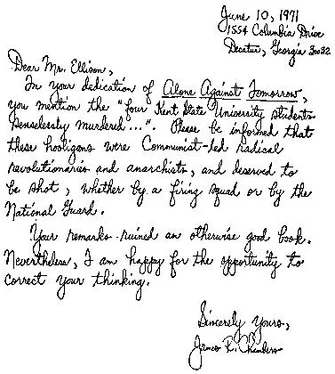 June 10, 1971
1554 Columbia Drive
Decatur, Georgia 30032
Dear Mr. Ellison,
In your dedication of Alone Against Tomorrow,
you mention the "four Kent State University students
senselessly murdered...". Please be informed that
these hooligans were Communist-led radical
revolutionaries and anarchists, and deserved to
be shot, whether by a firing squad or by the
National Guard.
Your remarks ruined an otherwise good book.
Nevertheless, I am happy for the opportunity to
correct your thinking.
Sincerely Yours,
James R. Chambers